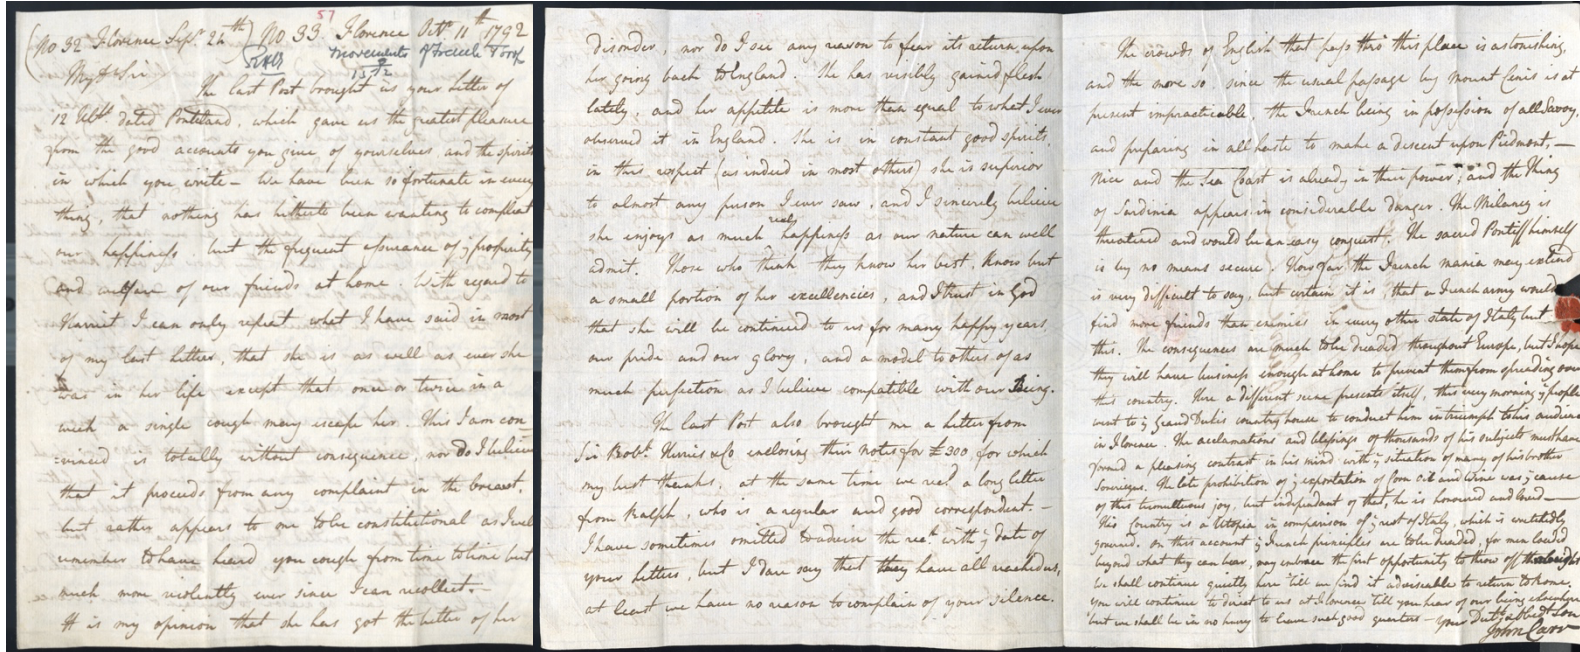 57
(No 32 Florence Sepr. 24th) No 33. Florence Octr 11th 1792
movements of French Troops
1792
My Dr Sir
The last Post brought us your letter of
12 Ulto. dated Ponteland, which gave us the greatest pleasure
from the good accounts you give of yourselves, and the spirits
in which you write – We have been so fortunate in every
thing, that nothing has hitherto been wanting to compleat
our happiness but the frequent assurance of ye prosperity
and welfare of our friends at home. With regard to
Harriet I can only repeat what I have said in most
of my last letters, that she is as well as ever she
was in her life except that once or twice in a
week a single cough may escape her. This I am con
=vinced is totally without consequence, nor do I believe
that it proceeds from any complaint in the breast,
but rather appears to me to be constitutional as I well
remember to have heard you cough from time to time but
much more violently ever since I can recollect. –
It is my opinion that she has got the better of her
disorder, nor do I see any reason to fear its return, upon
her going back to England. She has visibly gained flesh
lately, and her appetite is more than equal to what I ever
observed it in England. She is in constant good spirits,
in this respect (as indeed in most others) she is superior
to almost any person I ever saw, and I sincerely believe
she enjoys as much real happiness as our nature can well
admit. Those who think they know her best, know but
a small portion of her excellencies, and I trust in God
that she will be continued to us for many happy years,
our pride and our glory, and a model to others of as
much perfection as I believe compatible with our Being.
The last Post also brought me a letter from
Sir Robt. Herries & Co enclosing their notes for £300 for which
my best thanks, at the same time we recd a long letter
from Ralph, who is a regular and good correspondent. –
I have sometimes omitted to advise the rect. with ye date of
your letters, but I dare say that they have all reached us,
at least we have no reason to complain of your silence.
The crowds of English that pass thro this place is astonishing,
and the more so since the usual passage by mount Cenis is at
present impracticable, the French being in possession of all Savoy,
and preparing in all haste to make a descent upon Piedmont, –
Nice and the Sea Coast is already in their power; and the King
of Sardinia appears in considerable danger. The Milaney is
threatened and would be an easy conquest. The sacred Pontiff himself
is by no means secure. How far the French mania may extend
is very difficult to say, but certain it is, that a French army would
find more friends than enemies in every other state of Italy but
this. The consequences are much to be dreaded throughout Europe, but I hope
they will have business enough at home to prevent them from spreading over
this country. Here a different scene presents itself, this very morning ye people
went to ye Grand Dukes country house to conduct him in triumph to his audience
in Florence. The acclamations and blessings of thousands of his subjects must have
formed a pleasing contrast in his mind with ye situation of many of his brother
Sovereigns. The late prohibition of ye exportation of Corn oil and Wine was ye cause
of this tumultuous joy, but independant of that, he is honoured and loved –
This Country is a Utopia in comparison of ye rest of Italy, which is wretchedly
governed. On this account ye French principles are to be dreaded, for men loaded
beyond what they can bear, may embrace the first opportunity to throw off
We shall continue quietly here till we find it adviseable to return to home.
You will continue to direct to us at Florence till you hear of our being elsewhere
but we shall be in no hurry to leave such good quarters – Your Dutiful & obedt Son
John Carr